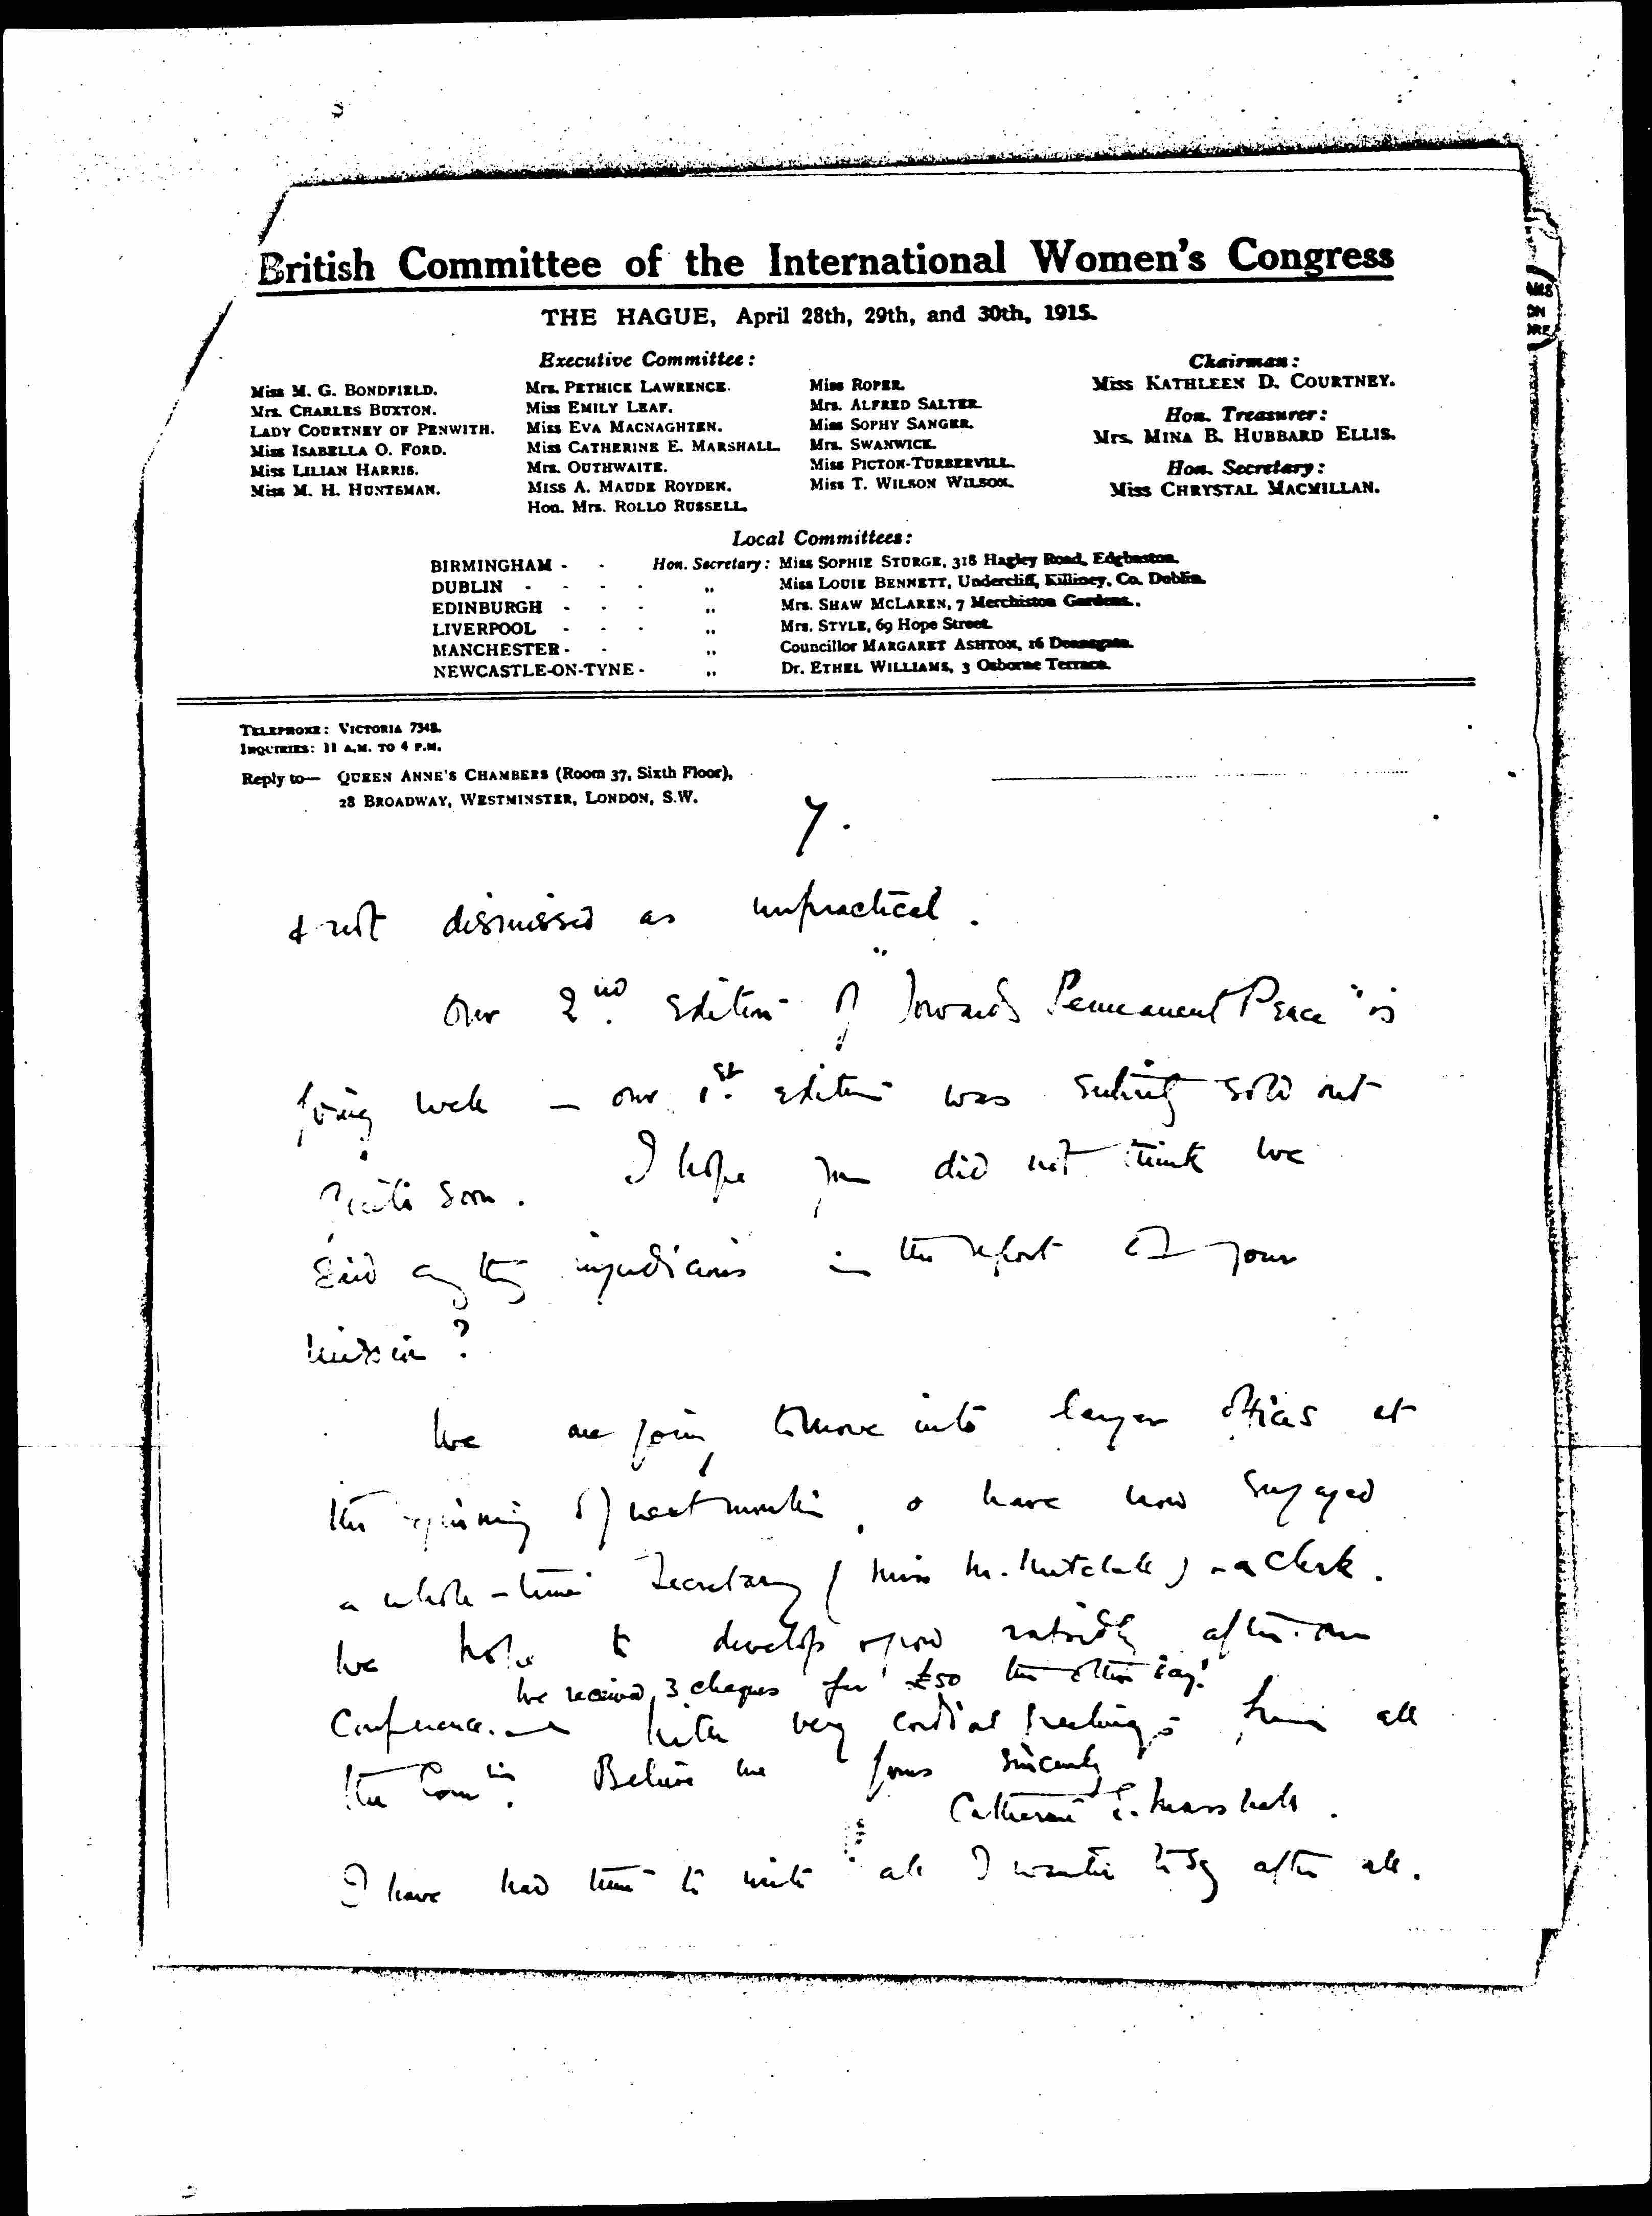 British Committee of the International Women's Congress
THE HAGUE, April 28th, 29th, and 30th, 1915.
Executive Committee:
Miss M. G. BONDFIELD.
Mrs. CHARLES BUXTON.
LADY COURTNEY OF PENWITH.
Miss ISABELLA O. FORD.
Miss LILIAN HARRIS.
Miss M. H. HUNTSMAN.
Mrs. PETHICK LAWRENCE.
Miss EMILY LEAF.
Miss EVA MACNAGHTEN.
Miss CATHERINE E. MARSHALL.
Mrs. OUTHWAITE.
MISS A. MAUDE ROYDEN.
Hon. Mrs. ROLLO RUSSELL.
Miss ROPER.
Mrs. ALFRED SALTER.
Miss SOPHY SANGER.
Mrs. SWANWICK.
Miss PICTON-TURBERVILL.
Miss T. WILSON WILSON.
Chairman:
Miss KATHLEEN D. COURTNEY.
Hon. Treasurer:
Mrs. MINA B. HUBBARD ELLIS.
Hon. Secretary:
Miss CHRYSTAL MACMILLAN.
Local Committees:
BIRMINGHAM - - Hon. Secretary: Miss SOPHIE STURGE, 318 Hagley Road, Edgbaston.
DUBLIN - - - - ,, Miss LOUIE BENNETT, Undercliff, Killiney, Co. Dublin.
EDINBURGH - - - ,, Mrs. SHAW MCLAREN, 7 Merchiston Gardens.
LIVERPOOL - - - ,, Mrs. STYLE, 69 Hope Street.
MANCHESTER - - ,, Councillor MARGARET ASHTON, 16 Deansgate.
NEWCASTLE-ON-TYNE - ,, Dr. ETHEL WILLIAMS, 3 Osborne Terrace.
TELEPHONE: VICTORIA 7348.
INQUIRIES: 11 A.M. TO 4 P.M.
Reply to— QUEEN ANNE'S CHAMBERS (Room 37, Sixth Floor),
28 BROADWAY, WESTMINSTER, LONDON, S.W.
7.
& not dismissed as unpractical.
Our 2nd edition of "Towards Permanent Peace" is
going well — our 1st edition was entirely sold out
quite soon. I hope you did not think we
said anything injudicious in the report of your
mission?
We are going to move into larger offices at
the beginning of next month, & have now engaged
a whole-time Secretary (Miss M. ) & a clerk.
We hope to develop rapidly after our
We received 3 cheques for £50 the other day!
Conference. With very cordial greetings from all
the Comtee. Believe me yours sincerely
Catherine E. Marshall.
I have had time to write all I wanted to say after all.